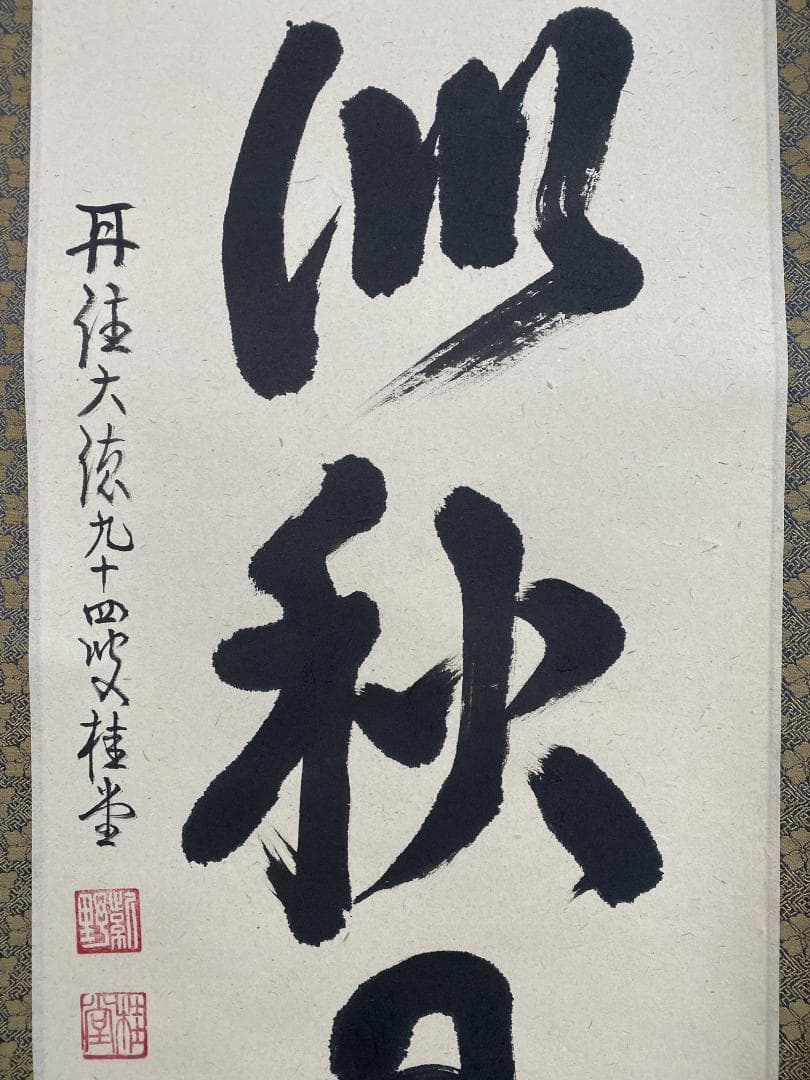 似秋
再住大徳九十四叟桂堂
紫野
桂堂